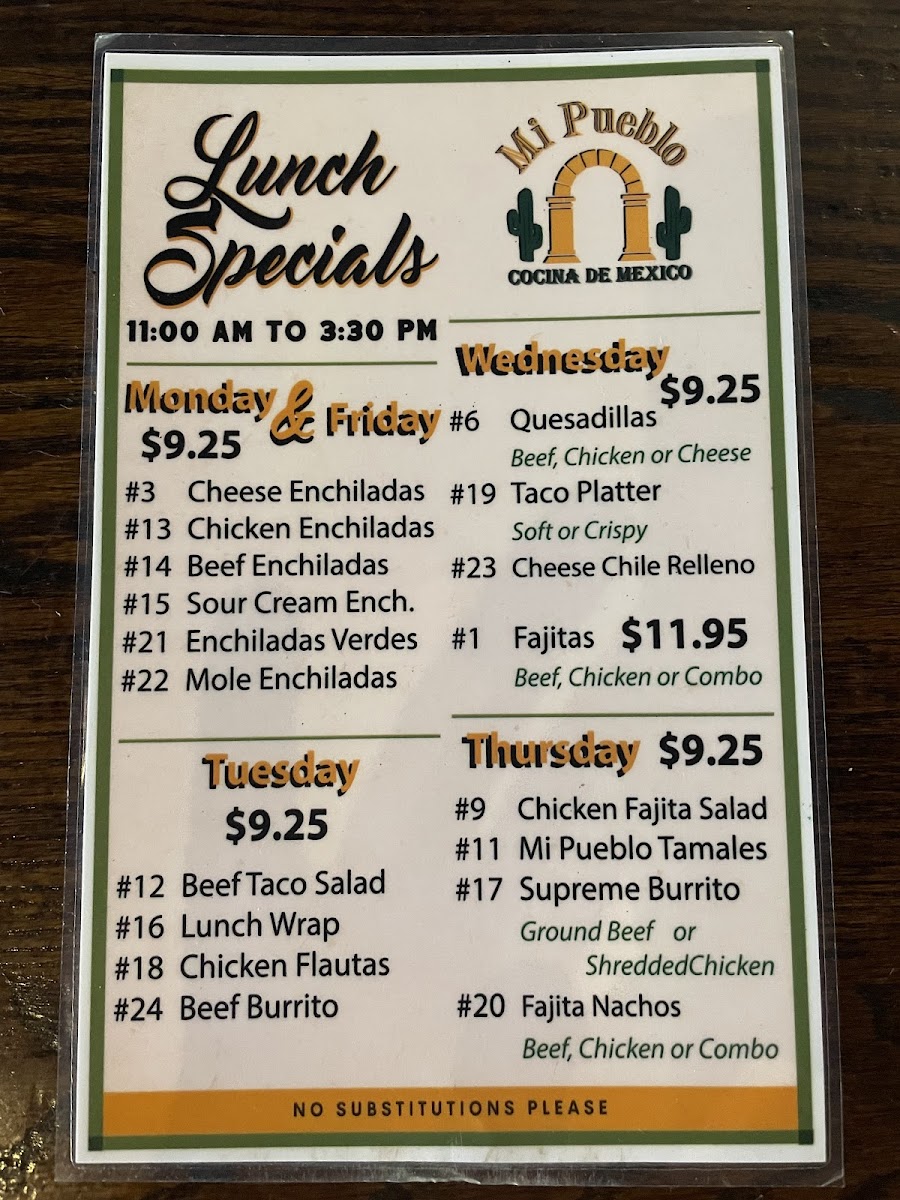 Lunch
Specials
11:00 AM TO 3:30 PM
Mi Pueblo
COCINA DE MEXICO
Monday & Friday
$9.25
#3 Cheese Enchiladas
#13 Chicken Enchiladas
#14 Beef Enchiladas
#15 Sour Cream Ench.
#21 Enchiladas Verdes
#22 Mole Enchiladas
Tuesday
$9.25
#12 Beef Taco Salad
#16 Lunch Wrap
#18 Chicken Flautas
#24 Beef Burrito
Wednesday
$9.25
#6 Quesadillas
Beef, Chicken or Cheese
#19 Taco Platter
Soft or Crispy
#23 Cheese Chile Relleno
#1 Fajitas $11.95
Beef, Chicken or Combo
Thursday $9.25
#9 Chicken Fajita Salad
#11 Mi Pueblo Tamales
#17 Supreme Burrito
Ground Beef or
ShreddedChicken
#20 Fajita Nachos
Beef, Chicken or Combo
NO SUBSTITUTIONS PLEASE